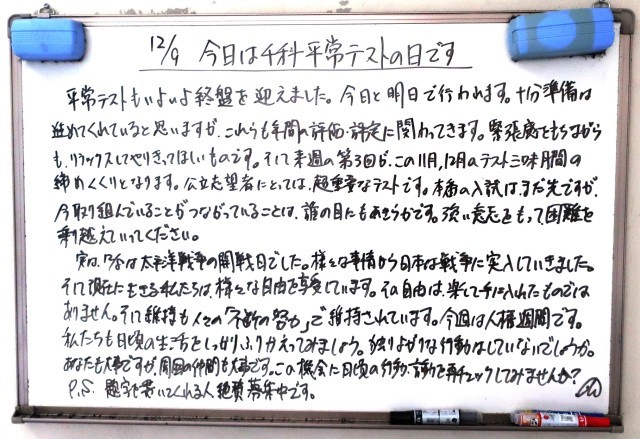 12/9 今日は千科平常テストの日です
平常テストもいよいよ終盤を迎えました。今日と明日で行われます。十分準備は
進めてくれていると思いますが、これらも年間の評価・評定に関わってきます。緊張感をもちながら
も、リラックスしてやりきってほしいものです。そして来週の第3回が、この11月、12月のテスト三昧月間の
締めくくりとなります。公立志望者にとっては、超重要なテストです。本番の入試は、まだ先ですが、
今取り組んでいることがつながっていることは、誰の目にもあきらかです。強い意志をもって、困難を
乗り越えていってください。
実は、昨日は太平洋戦争の開戦日でした。様々な事情から日本は戦争に突入していきました。
そして現在に生きる私たちは、様々な自由を享受しています。その自由は、楽して手に入れたものでは
ありません。そして維持も人々の「不断の努力」で維持されています。今週は人権週間です。
私たちも日頃の生活をしっかりふりかえってみましょう。独りよがりな行動はしていないでしょうか。
あなたも大事ですが、周囲の仲間も大事です。この機会に日頃の行動、言動を再チェックしてみませんか?
P.S. 題字を書いてくれる人絶賛募集中です。